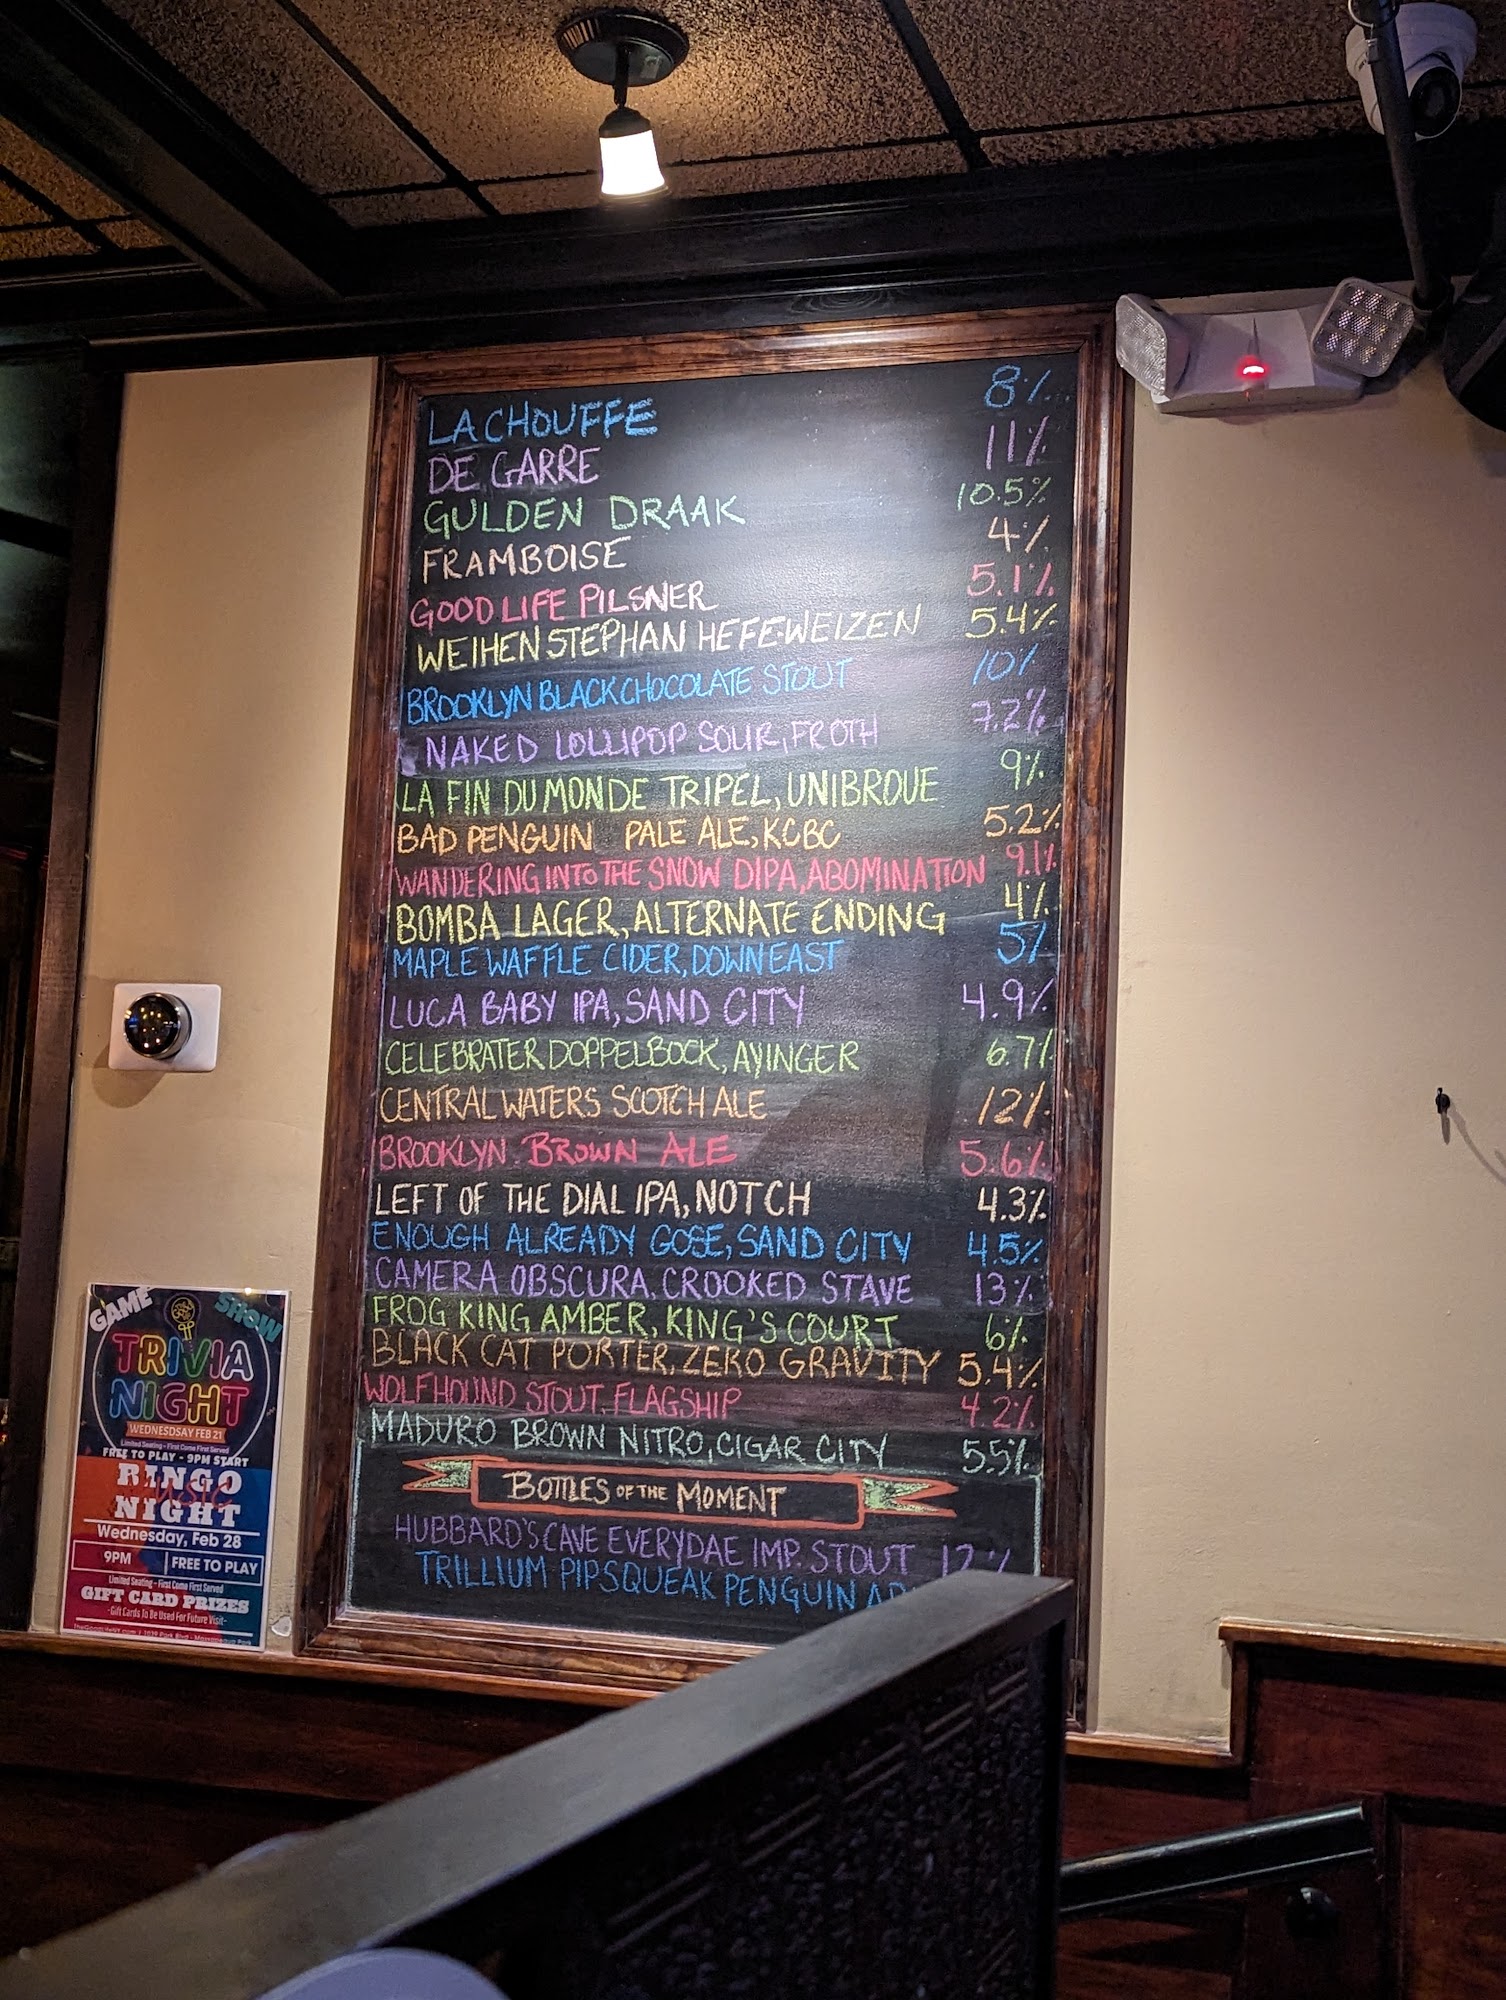 LA CHOUFFE 8%
DE GARRE 11%
GULDEN DRAAK 10.5%
FRAMBOISE 4%
GOOD LIFE PILSNER 5.1%
WEIHENSTEPHAN HEFE-WEIZEN 5.4%
BROOKLYN BLACK CHOCOLATE STOUT 10%
NAKED LOLLIPOP SOUR, FROTH 7.2%
LA FIN DU MONDE TRIPEL, UNIBROUE 9%
BAD PENGUIN PALE ALE, KCBC 5.2%
WANDERING INTO THE SNOW DIPA, ABOMINATION 9.1%
BOMBA LAGER, ALTERNATE ENDING 4%
MAPLE WAFFLE CIDER, DOWNEAST 5%
LUCA BABY IPA, SAND CITY 4.9%
CELEBRATER DOPPELBOCK, AYINGER 6.7%
CENTRAL WATERS SCOTCH ALE 12%
BROOKLYN BROWN ALE 5.6%
LEFT OF THE DIAL IPA, NOTCH 4.3%
ENOUGH ALREADY GOSE, SAND CITY 4.5%
CAMERA OBSCURA, CROOKED STAVE 13%
FROG KING AMBER, KING'S COURT 6%
BLACK CAT PORTER, ZERO GRAVITY 5.4%
WOLFHOUND STOUT, FLAGSHIP 4.2%
MADURO BROWN NITRO, CIGAR CITY 5.5%
BOTTLES OF THE MOMENT
HUBBARD'S CAVE EVERYDAE IMP. STOUT
TRILLIUM PIPSQUEAK PENGUIN
GAME SHOW
TRIVIA
NIGHT
WEDNESDSAY FEB 21
Limited Seating - First Come First Served
FREE TO PLAY - 9PM START
RINGO
MUSIC
NIGHT
Wednesday, Feb 28
9PM FREE TO PLAY
Limited Seating - First Come First Served
GIFT CARD PRIZES
-Gift Cards To Be Used For Future Visit-